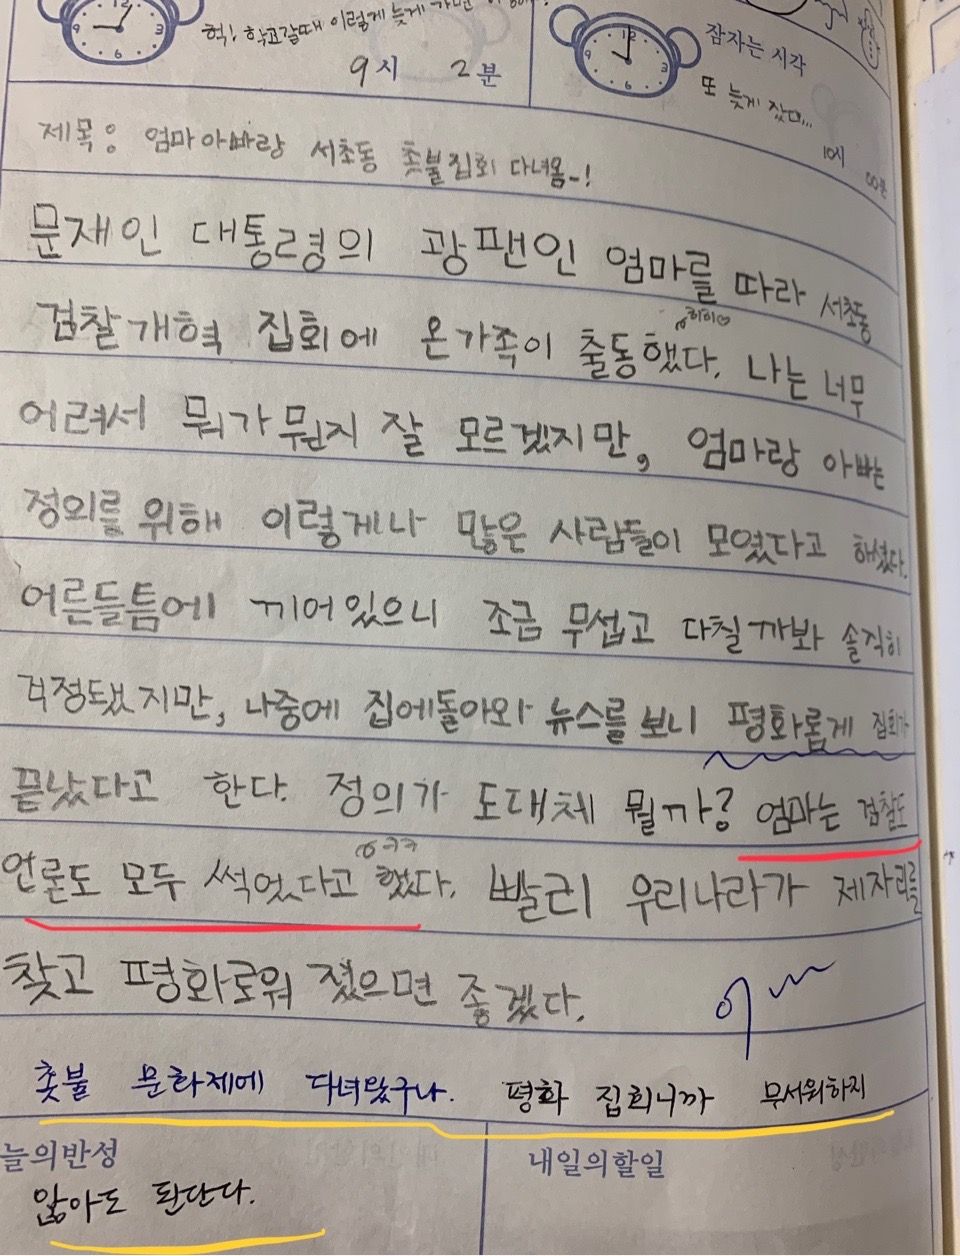 헉! 학교갈때 이렇게 늦게
9시 2분
잠자는 시각
또 늦게 잤다...
10시 00분
제목: 엄마아빠랑 서초동 촛불집회 다녀옴~!
문재인 대통령의 광팬인 엄마를 따라 서초동
히히♡
검찰개혁 집회에 온가족이 출동했다. 나는 너무
어려서 뭐가뭔지 잘 모르겠지만, 엄마랑 아빠는
정의를 위해 이렇게나 많은 사람들이 모였다고 하셨다.
어른들틈에 끼어있으니 조금 무섭고 다칠까봐 솔직히
걱정됐지만, 나중에 집에돌아와 뉴스를 보니 평화롭게 집회가
끝났다고 한다. 정의가 도대체 뭘까? 엄마는 검찰도
ㅋㅋ
언론도 모두 썩었다고 했다. 빨리 우리나라가 제자리를
찾고 평화로워 졌으면 좋겠다.
촛불 문화제에 다녀왔구나. 평화 집회니까 무서워하지
늘의반성
내일의할일
않아도 된단다.